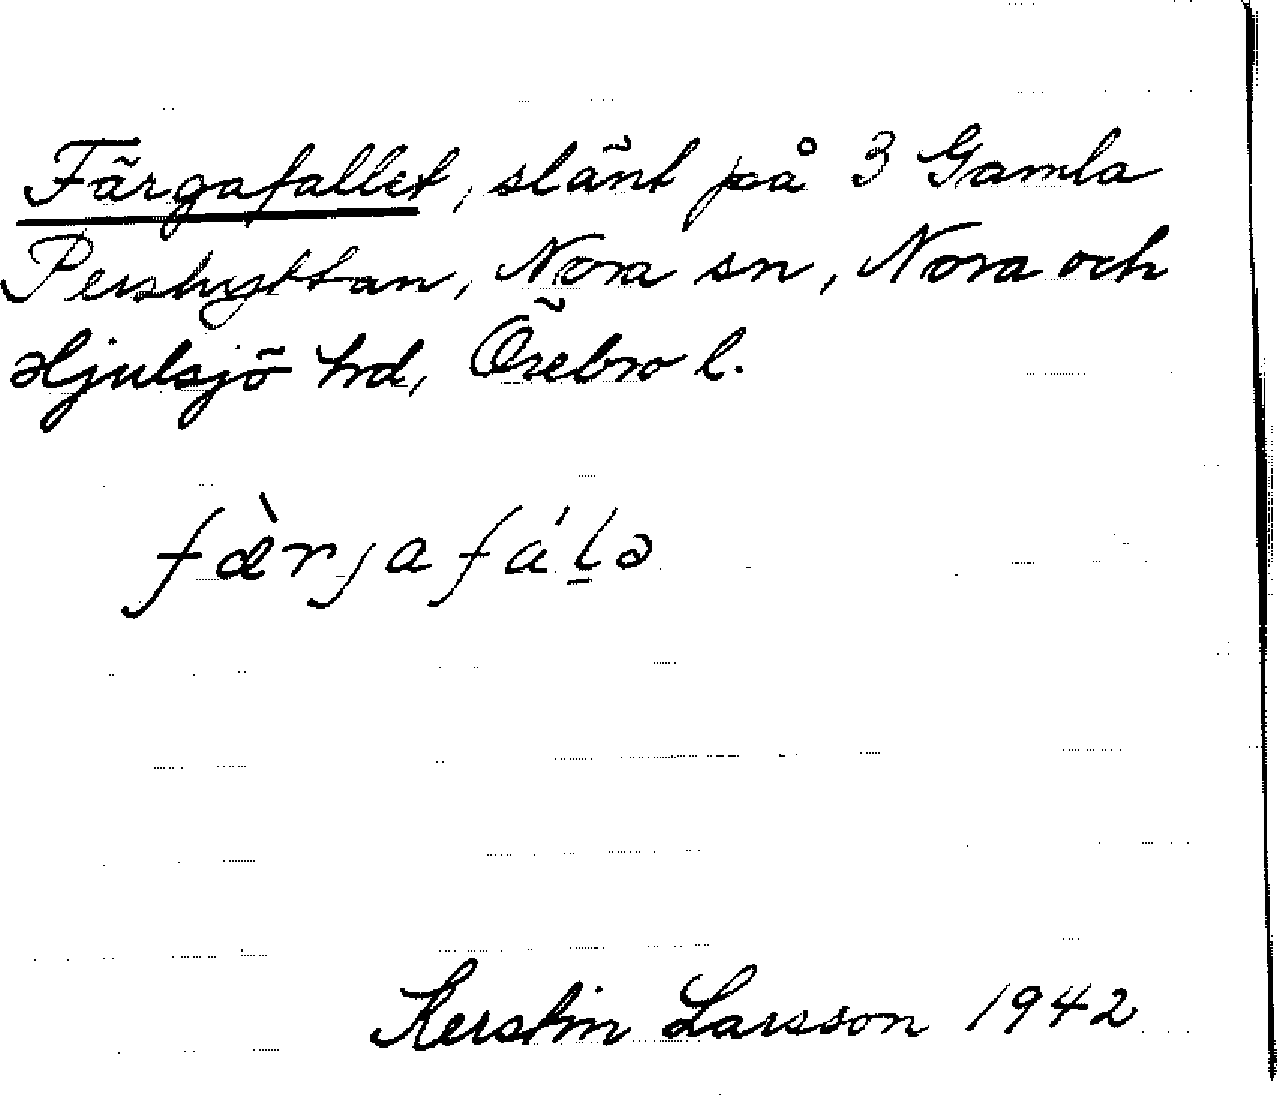 Färgafallet, slänt på 3 Gamla
Pershyttan, Nora sn, Nora och
Hjulsjö hd, Örebro l.
fæ̀rjafáḻə
Kerstin Larsson 1942